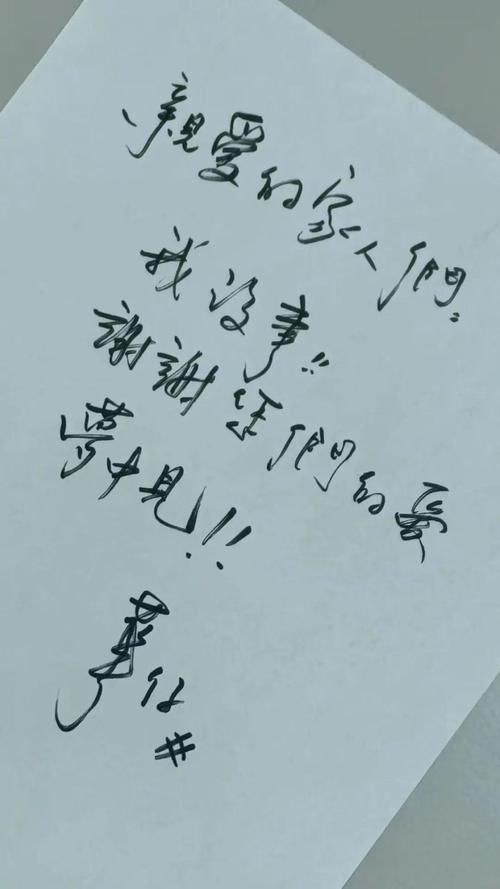 親愛的家人們:
我沒事!!
謝謝們的愛
夢中見!!
華仔
#